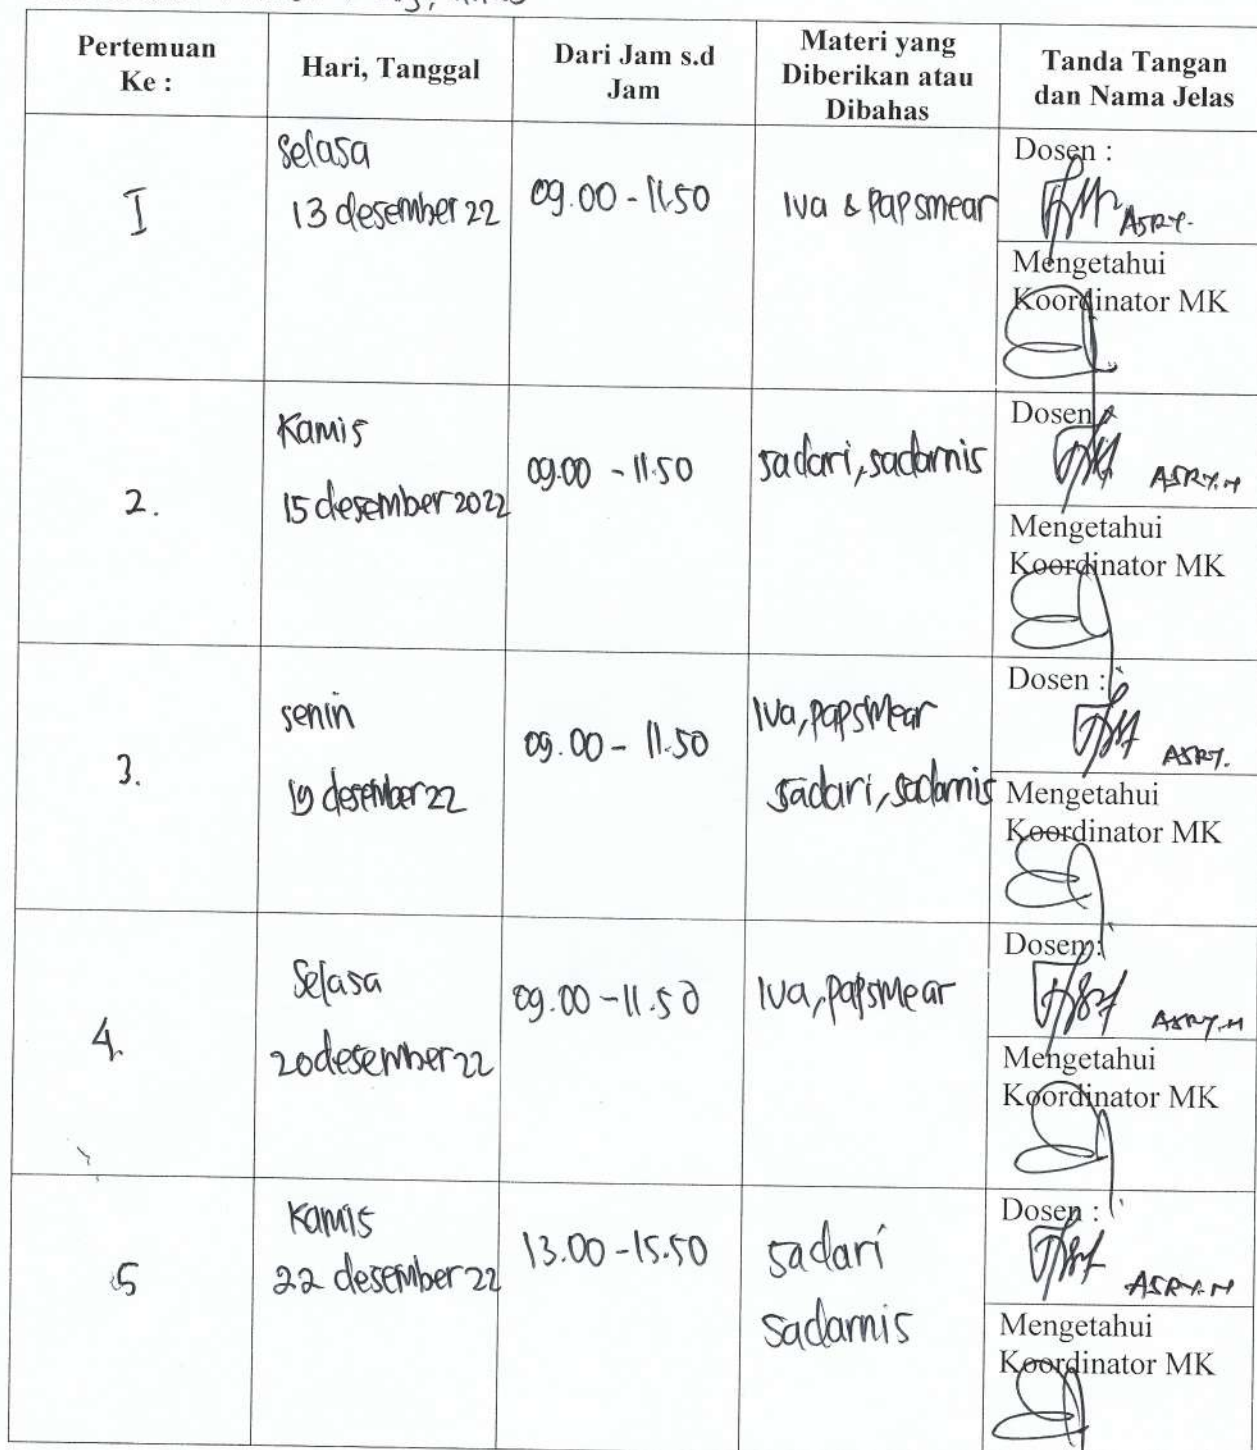 Pertemuan
Ke :
Hari, Tanggal
Dari Jam s.d
Jam
Materi yang
Diberikan atau
Dibahas
Tanda Tangan
dan Nama Jelas
I
Selasa
13 desember 22
09.00 - 11.50
Iva & Papsmear
Dosen :
ASRY.
Mengetahui
Koordinator MK
2.
Kamis
15 desember 2022
09.00 - 11.50
sadari, sadarnis
Dosen :
ASRY.M
Mengetahui
Koordinator MK
3.
senin
19 desember 22
09.00 - 11.50
Iva, papsmear
sadari, sadarnis
Dosen :
ASRY.
Mengetahui
Koordinator MK
4.
Selasa
20 desember 22
09.00 - 11.50
Iva, papsmear
Dosen :
ASRY.M
Mengetahui
Koordinator MK
5
Kamis
22 desember 22
13.00 - 15.50
sadari
sadarnis
Dosen :
ASRY.M
Mengetahui
Koordinator MK